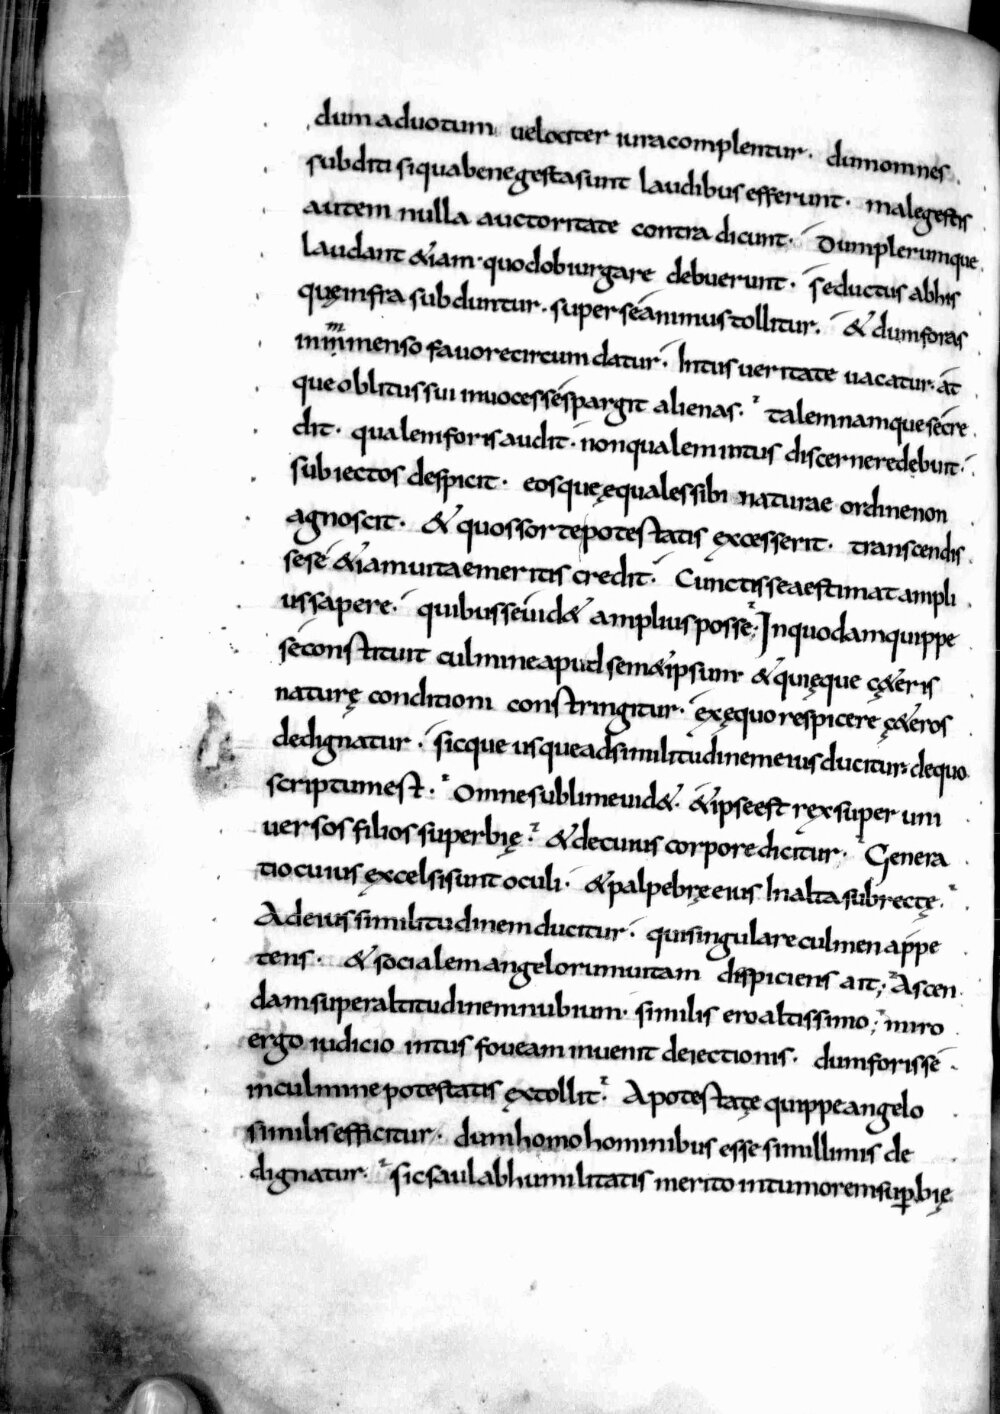 dum ad uotum uelociter iura complentur · dum omnes
subditi si qua bene gesta sunt laudibus efferunt · male gestis
autem nulla auctoritate contra dicunt · Dum plerumque
laudant &iam · quod obiurgare debuerunt · seductus ab his
quę infra subduntur · super se animus tollitur · & dum foras
inmmenso fauore circumdatur · Intus ueritate uacatur · at
que oblitus sui in uoces se spargit alienas · talem namque se cre
dit · qualem foris audit · non qualem intus discernere debuit ·
subiectos despicit · eosque ęquales sibi naturae ordine non
agnoscit · & quos sorte potestatis excesserit · transcendis
se se &iam uitae meritis credit · Cunctis se aestimat ampli
us sapere · quibus se uid& amplius posse; In quodam quippe
se constituit culmine apud sem&ipsum · & qui ęque c&eris
naturę conditioni constringitur · ex ęquo respicere c&eros
dedignatur · sicque usque ad similitudinem eius ducitur · de quo
scriptum est · Omne sublime uid& · & ipse est rex super uni
uersos filios superbię · & de cuius corpore dicitur · Genera
tio cuius excelsi sunt oculi · & palpebrę eius In alta subrectę ·
Ad eius similitudinem ducitur · qui singulare culmen appe
tens · & socialem angelorum uitam dispiciens ait; Ascen
dam super altitudinem nubium · similis ero altissimo; miro
ergo iudicio intus foueam inuenit deiectionis · dum foris se
in culmine potestatis extollit · Apostatę quippe angelo
similis efficitur · dum homo hominibus esse simillimis de
dignatur · sic saul ab humilitatis merito in tumorem supbię